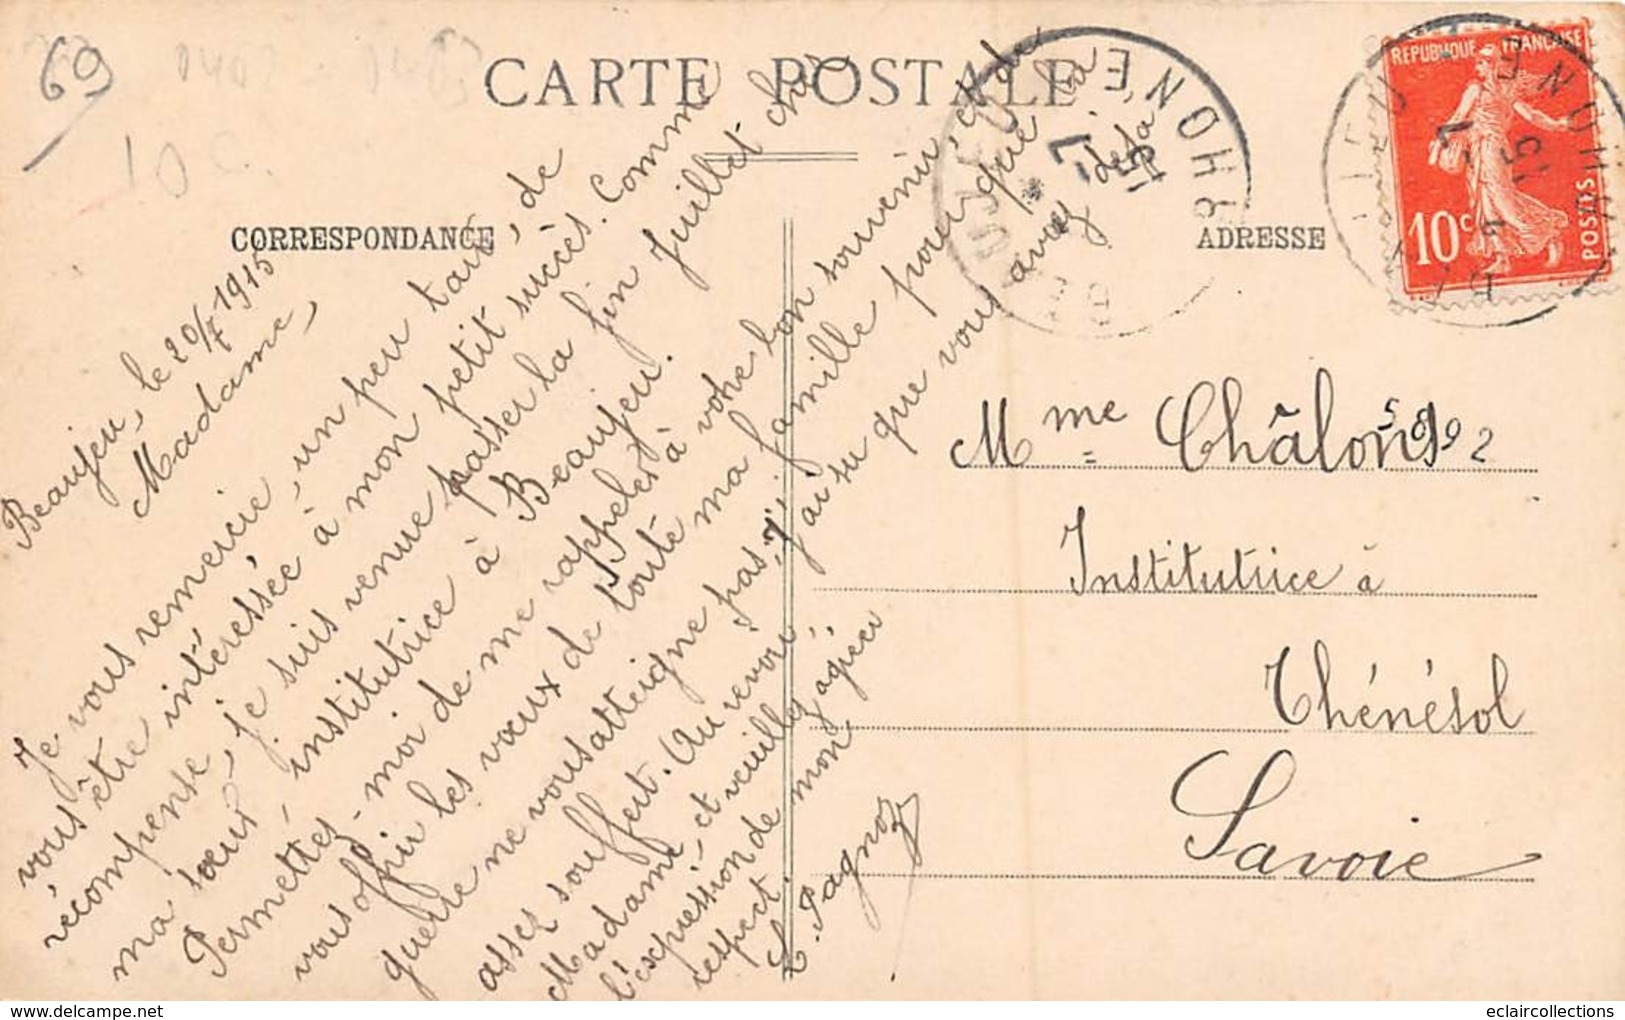 69
10 c.
CARTE POSTALE
CORRESPONDANCE
ADRESSE
Beaujeu, le 20/7 1915
Madame,
Je vous remercie, un peu tard, de
vous être intéressée à mon petit succès. Comme
récompense, je suis venue passer la fin Juillet chez
ma sœur, institutrice à Beaujeu.
Permettez-moi de me rappeler à votre bon souvenir et de
vous offrir les vœux de toute ma famille pour que la
guerre ne vous atteigne pas ; j'ai su que vous avez déjà
assez souffert. Au revoir
Madame et veuillez agréer
l'expression de mon
respect.
L. Pagnoz
Mme Châlons
5892
Institutrice à
Thénésol
Savoie
BEAUJEU
RHONE
7
15
REPUBLIQUE FRANÇAISE
10c
POSTES
RHONE
7
15
eclaircollections